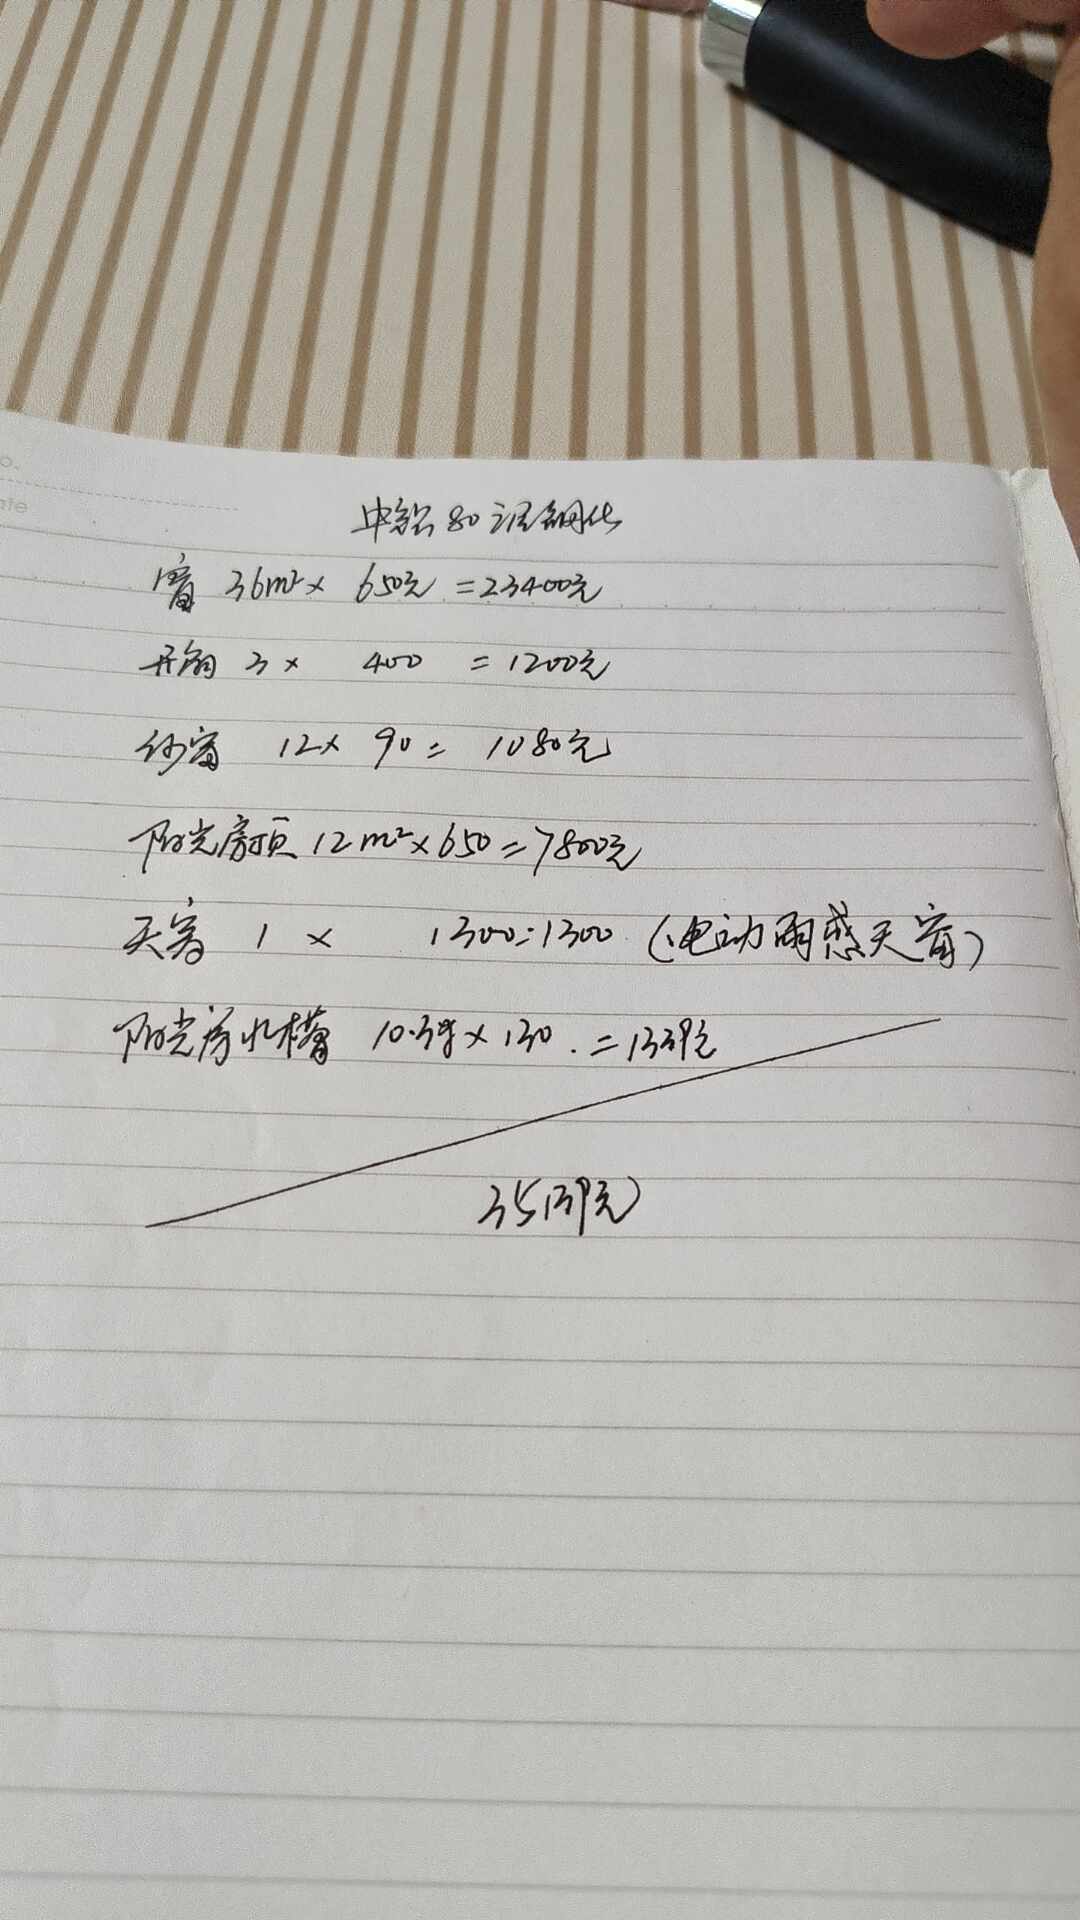 o.
ate
中铝80 泥钢化
窗 36m²× 650元 =23400元
开扇 3× 400 =1200元
纱窗 12× 90= 1080元
阳光房顶 12m²×650=7800元
天窗 1 × 1300=1300 (电动雨感天窗)
阳光房水槽 10.3 × 130 .=1339元
35139元